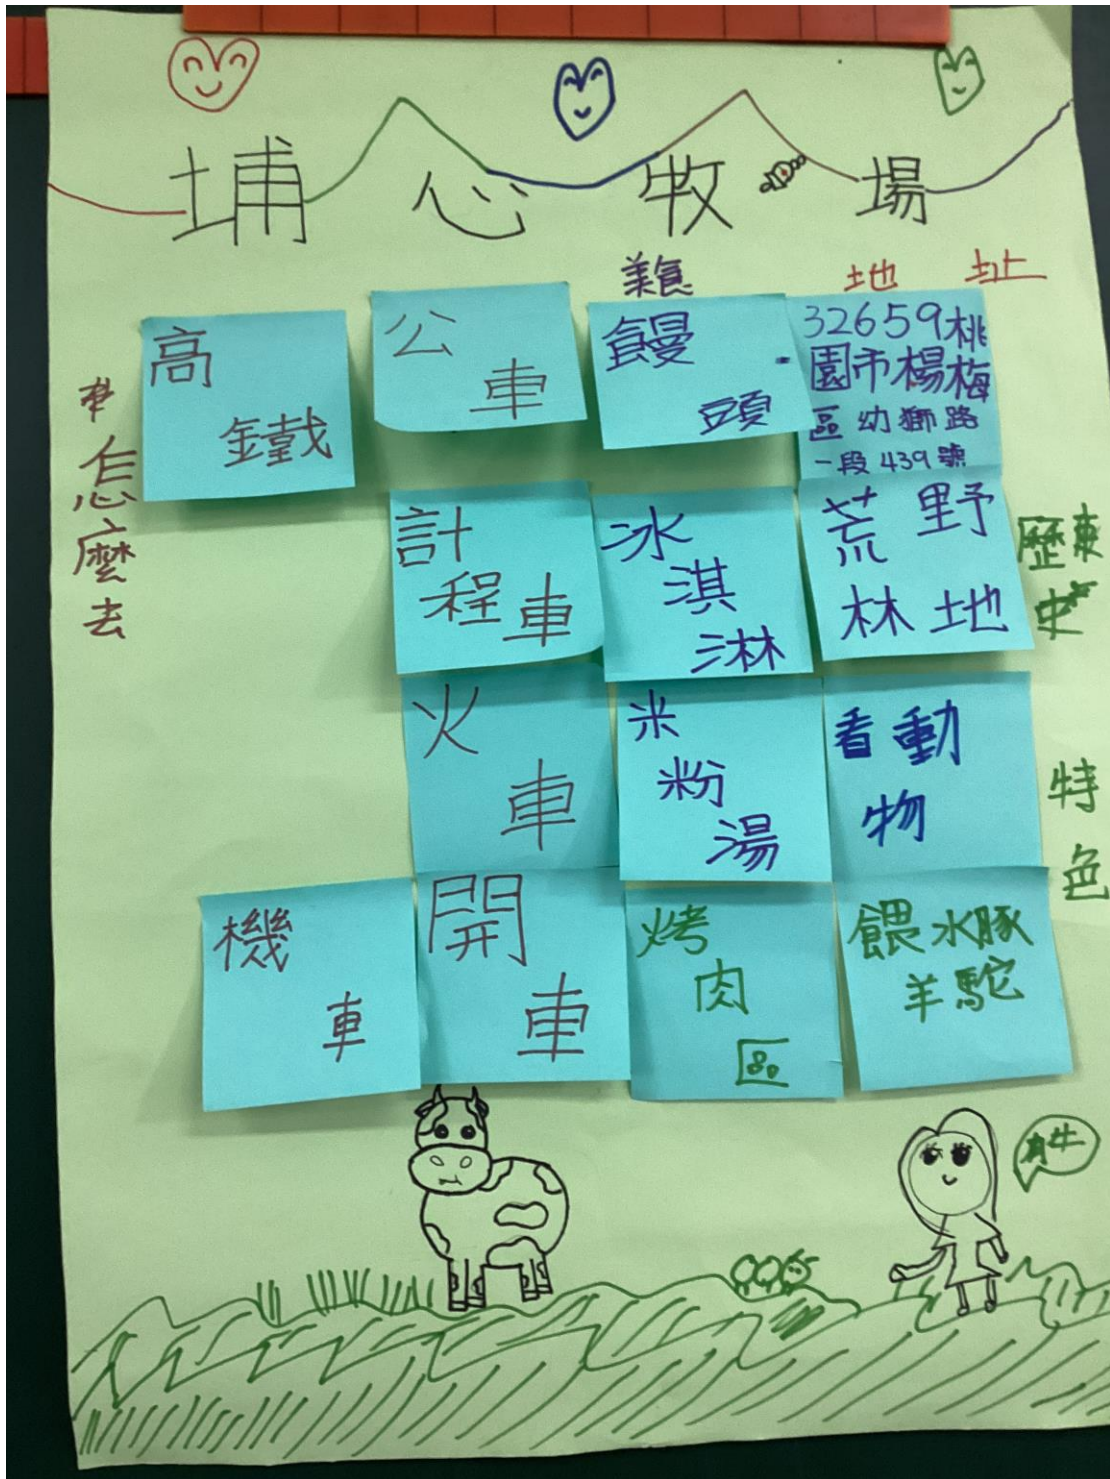 埔心牧場
美食
地址
怎麼去
高
鐵
公
車
饅
頭
32659桃
園市楊梅
區幼獅路
一段439號
計
程車
冰
淇
淋
荒野
林地
歷
史
火
車
米
粉
湯
看動
物
特
色
機
車
開
車
烤
肉
區
餵水豚
羊駝
有牛